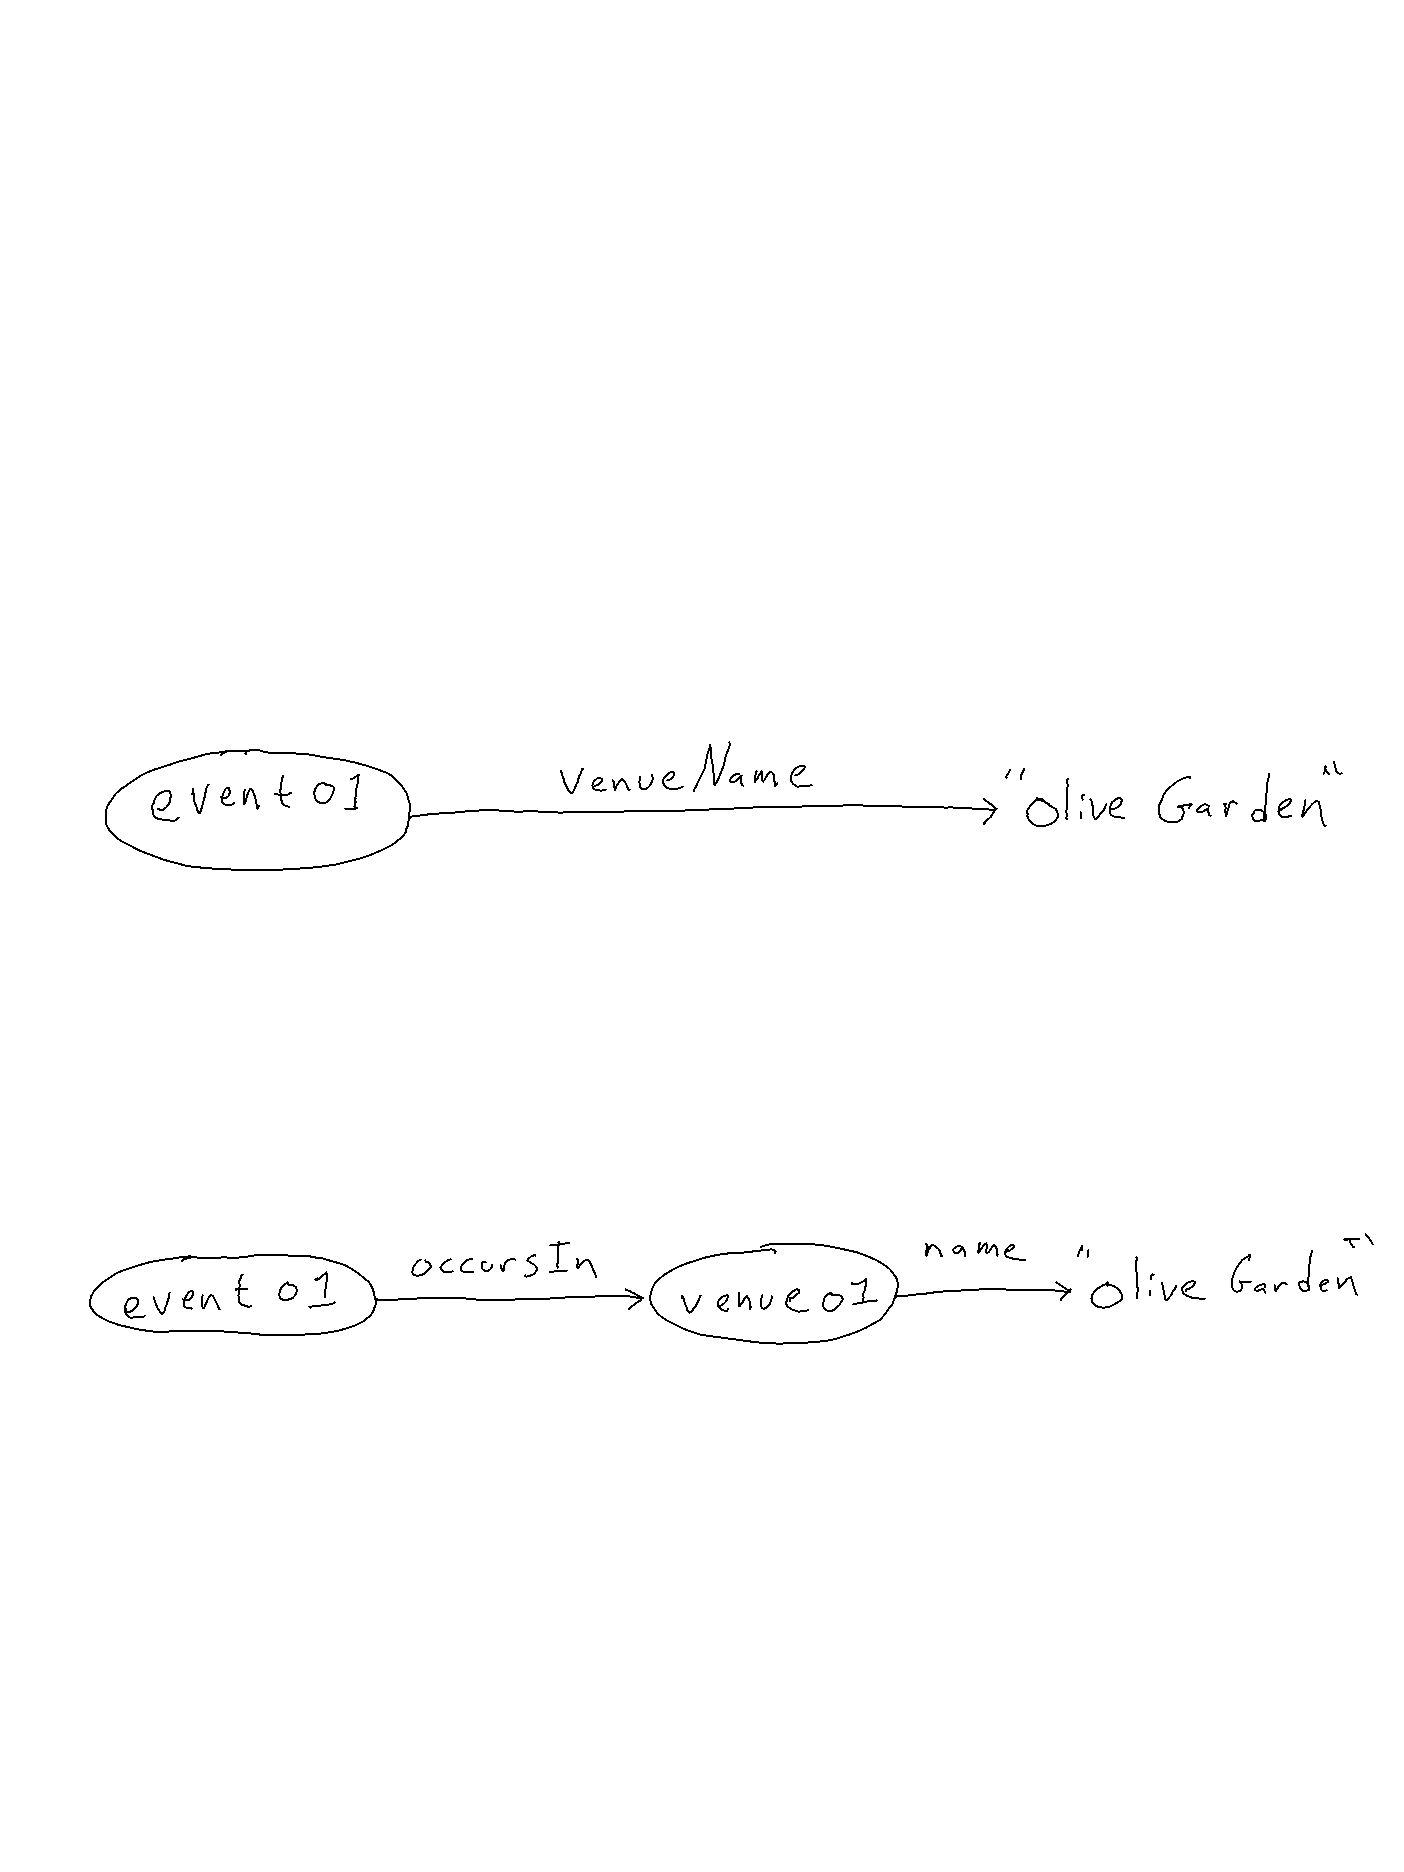 event01 venueName "Olive Garden"
event01 occursIn venue01 name "Olive Garden"